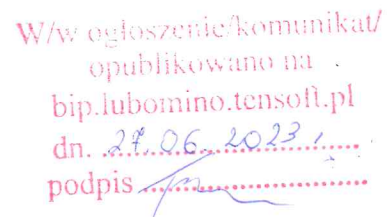 W/w ogłoszenie/komunikat/
opublikowano na
bip.lubomino.tensoft.pl
dn. 27.06.2023,
podpis